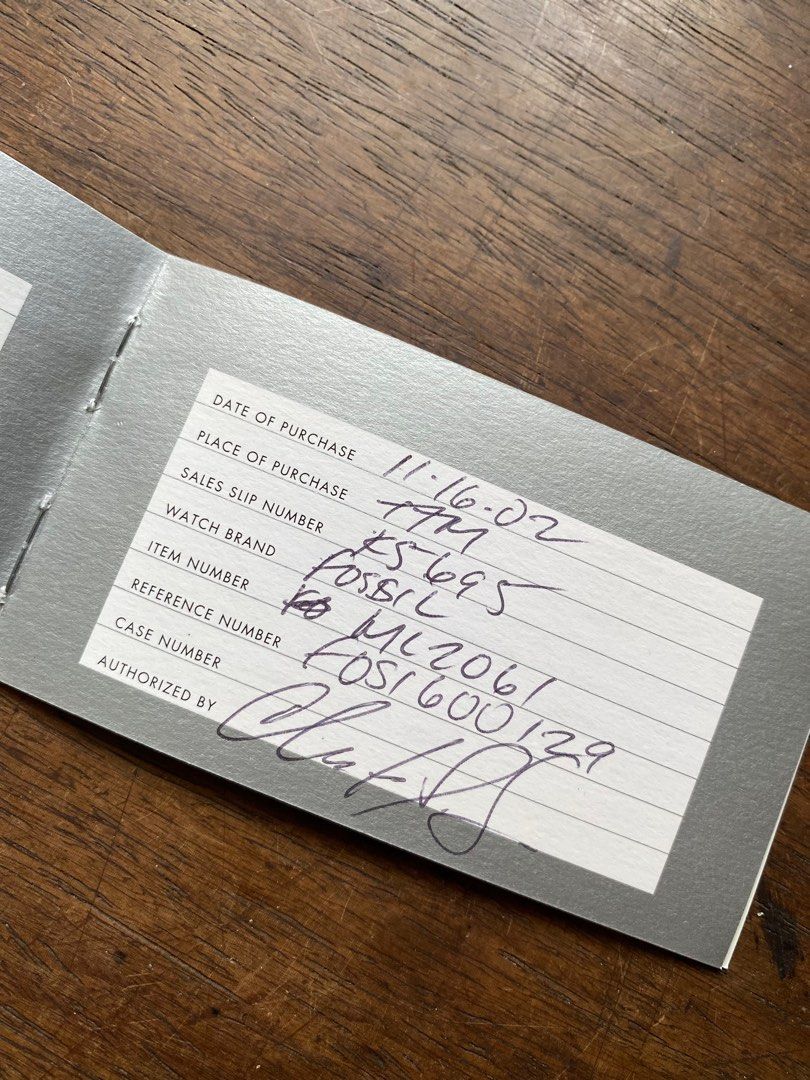 DATE OF PURCHASE 11-16-02
PLACE OF PURCHASE
SALES SLIP NUMBER
WATCH BRAND FOSSIL
ITEM NUMBER ML2061
REFERENCE NUMBER FOS1600129
CASE NUMBER
AUTHORIZED BY